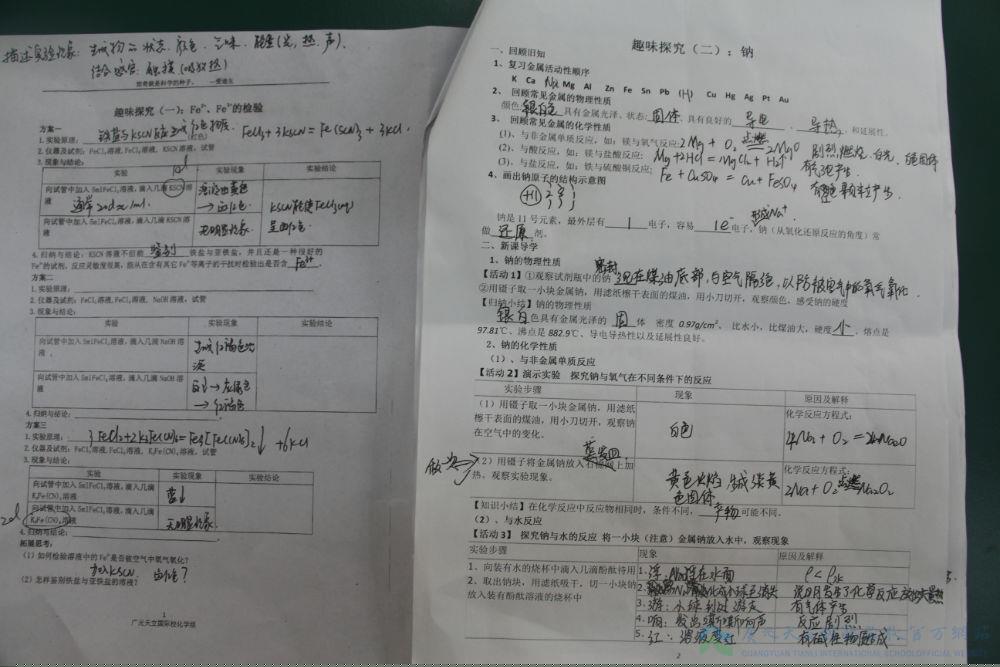 描述实验现象：生成物的状态、颜色、气味、能量(光、热、声)、
趣味探究（一）：Fe²⁺、Fe³⁺的检验
方案一
1.实验原理：
FeCl₃+3KSCN=Fe(SCN)₃+3KCl
2.仪器及试剂：FeCl₃溶液,FeCl₂溶液，KSCN溶液，试管
3.现象与结论：
实验 实验现象 实验结论
向试管中加入5mlFeCl₃溶液，滴入几滴KSCN溶液
向试管中加入5mlFeCl₂溶液，滴入几滴KSCN溶液 无明显现象
4.归纳与结论：KSCN溶液不但能 鉴别 铁盐与亚铁盐，并且还是一种很好的
Fe³⁺的试剂，反应灵敏度很高，能从在含有其它Fe²⁺等离子的干扰时检验出是否含 Fe³⁺
方案二
1.实验原理：
2.仪器及试剂：FeCl₃溶液,FeCl₂溶液，NaOH溶液，试管
3.现象与结论：
实验 实验现象 实验结论
向试管中加入5mlFeCl₃溶液，滴入几滴NaOH溶液，
向试管中加入5mlFeCl₂溶液，滴入几滴NaOH溶液 →红褐色
4.归纳与结论：
方案三
1.实验原理：
2.仪器及试剂：FeCl₃溶液,FeCl₂溶液，K₃Fe(CN)₆溶液，试管
3.现象与结论：
实验 实验现象 实验结论
向试管中加入5mlFeCl₂溶液，滴入几滴K₃Fe(CN)₆溶液 蓝↓
向试管中加入5mlFeCl₃溶液，滴入几滴K₃Fe(CN)₆溶液 无明显现象
4.归纳与结论：
拓展思考：
（1）如何检验溶液中的Fe²⁺是否被空气中氧气氧化？
加入KSCN
（2）怎样鉴别铁盐与亚铁盐的溶液？
1
广元天立国际校化学组
趣味探究（二）：钠
一、回顾旧知
1、复习金属活动性顺序
K Ca Na Mg Al Zn Fe Sn Pb (H) Cu Hg Ag Pt Au
2、回顾常见金属的物理性质
颜色：银白色 具有金属光泽。状态：固体。具有良好的 导电 、导热 、和延展性。
3、回顾常见金属的化学性质
（1）、与非金属单质反应，如：镁与氧气反应：2Mg + O₂ 点燃 2MgO 剧烈燃烧、白光、
（2）、与酸反应，如：镁与盐酸反应：Mg+2HCl=MgCl₂+H₂↑
（3）、与盐反应，如：铁与硫酸铜反应：Fe + CuSO₄ = Cu + FeSO₄
4、画出钠原子的结构示意图
+11 2 8 1
钠是11号元素，最外层有 1 电子，容易 1e⁻ 形成Na⁺ 电子，钠（从氧化还原反应的角度）常
做 还原 剂。
二、新课导学
1、钠的物理性质
【活动1】①观察试剂瓶中的钠 密封 保存在煤油底部，与空气隔绝，以防被空气中的氧气氧化.
②用镊子取一小块金属钠，用滤纸擦干表面的煤油，用小刀切开，观察颜色，感受钠的硬度
【归纳小结】钠的物理性质
银白 色具有金属光泽的 固 体 密度 0.97g/cm³，比水小，比煤油大，硬度 小 ，熔点是
97.81℃、沸点是882.9℃、导电导热性以及延展性良好。
2、钠的化学性质
（1）、与非金属单质反应
【活动2】演示实验 探究钠与氧气在不同条件下的反应
实验步骤 现象 原因及解释
（1）用镊子取一小块金属钠，用滤纸擦干表面的煤油，用小刀切开，观察钠在空气中的变化。 白色 化学反应方程式：
4Na + O₂ = 2Na₂O
（2）用镊子将金属钠放入石棉网上加热，观察实验现象。 蒸发皿 黄色火焰 生成淡黄色固体 化学反应方程式：
2Na+O₂ 点燃 Na₂O₂
【知识小结】在化学反应中反应物相同时，条件不同，产物 可能不同。
（2）、与水反应
【活动3】 探究钠与水的反应 将一小块（注意）金属钠放入水中，观察现象
实验步骤 现象 原因及解释
1、向装有水的烧杯中滴入几滴酚酞待用
2、取出钠块，用滤纸吸干，切一小块钠放入装有酚酞溶液的烧杯中
1.浮：Na浮在水面 ρ<ρ水
3.游：小球到处游动 有气体产生
反应剧烈
5.红：溶液变红 有碱性物质生成
2
GUANGYUAN TIANLI INTERNATIONAL SCHOOL OFFICIAL WEBSITE